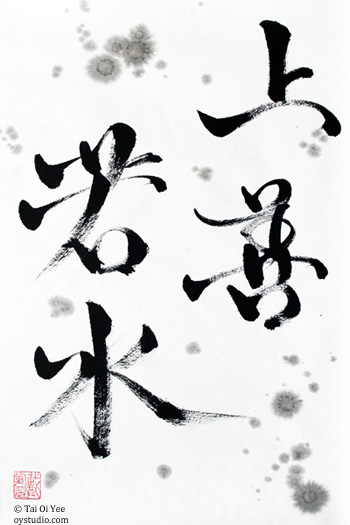 上善
若水
© Tai Oi Yee
oystudio.com